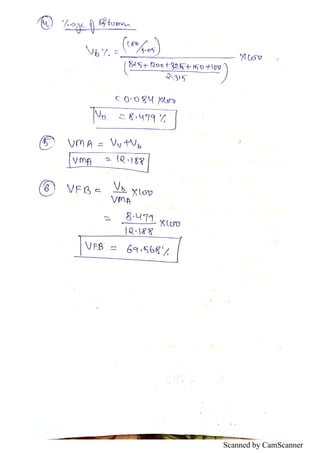 ④ %age of Bitumen
Vb % = (100/1.05) / ((825 + 1200 + 325 + 150 + 100) / 2.315) × 100
= 0.084 × 100
Vb = 8.479 %
⑤ VMA = Vv + Vb
VMA = 12.188
⑥ VFB = Vb / VMA × 100
= 8.479 / 12.188 × 100
VFB = 69.568 %
Scanned by CamScanner